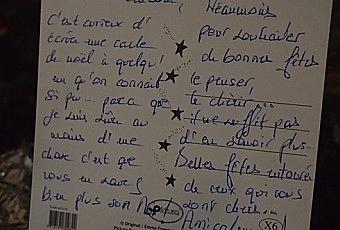 C'est curieux d'
écrire une carte
de noël à quelqu'
un qu'on connait
si peu... parce que
je suis sûre au
moins d'une
chose c'est que
vous en savez
bien plus
Néanmoins
pour souhaiter
de bonnes fêtes
le penser,
il me suffit pas
d'en savoir plus...
Belles fêtes entourée
de ceux qui vous
sont chers...
Amical
© Original
X6